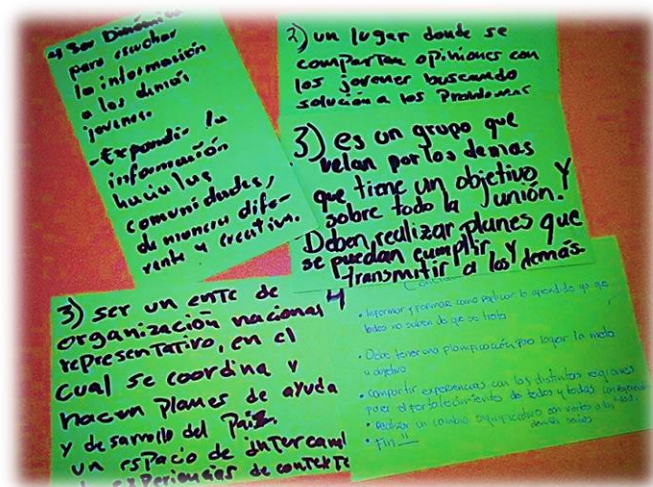 4) Ser Dinámico
para escuchar
la información
a los demás
jovenes.
- Expandir la
información
hacia las
comunidades,
de manera dife-
rente y creativa.
2) un lugar donde se
compartan opiniones con
los jovenes buscando
solución a los Problemas
3) es un grupo que
velan por los demas
que tiene un objetivo y
sobre todo la unión.
Deben realizar planes que
se puedan cumplir y
transmitir a los demás.
3) ser un ente de
organización nacional
representativo, en el
cual se coordina y
hacen planes de ayuda
y desarrollo del País.
un espacio de intercam
experiencias de context
4
• Informar y formar como replicar lo aprendido ya que
todos no saben de que se trata
• Debe tener una planificación para lograr la meta
u objetivo
• compartir experiencias con las distintas regiones
para el fortalecimiento de todos y todas
• Realizar un cambio significativo con
• Fin!!